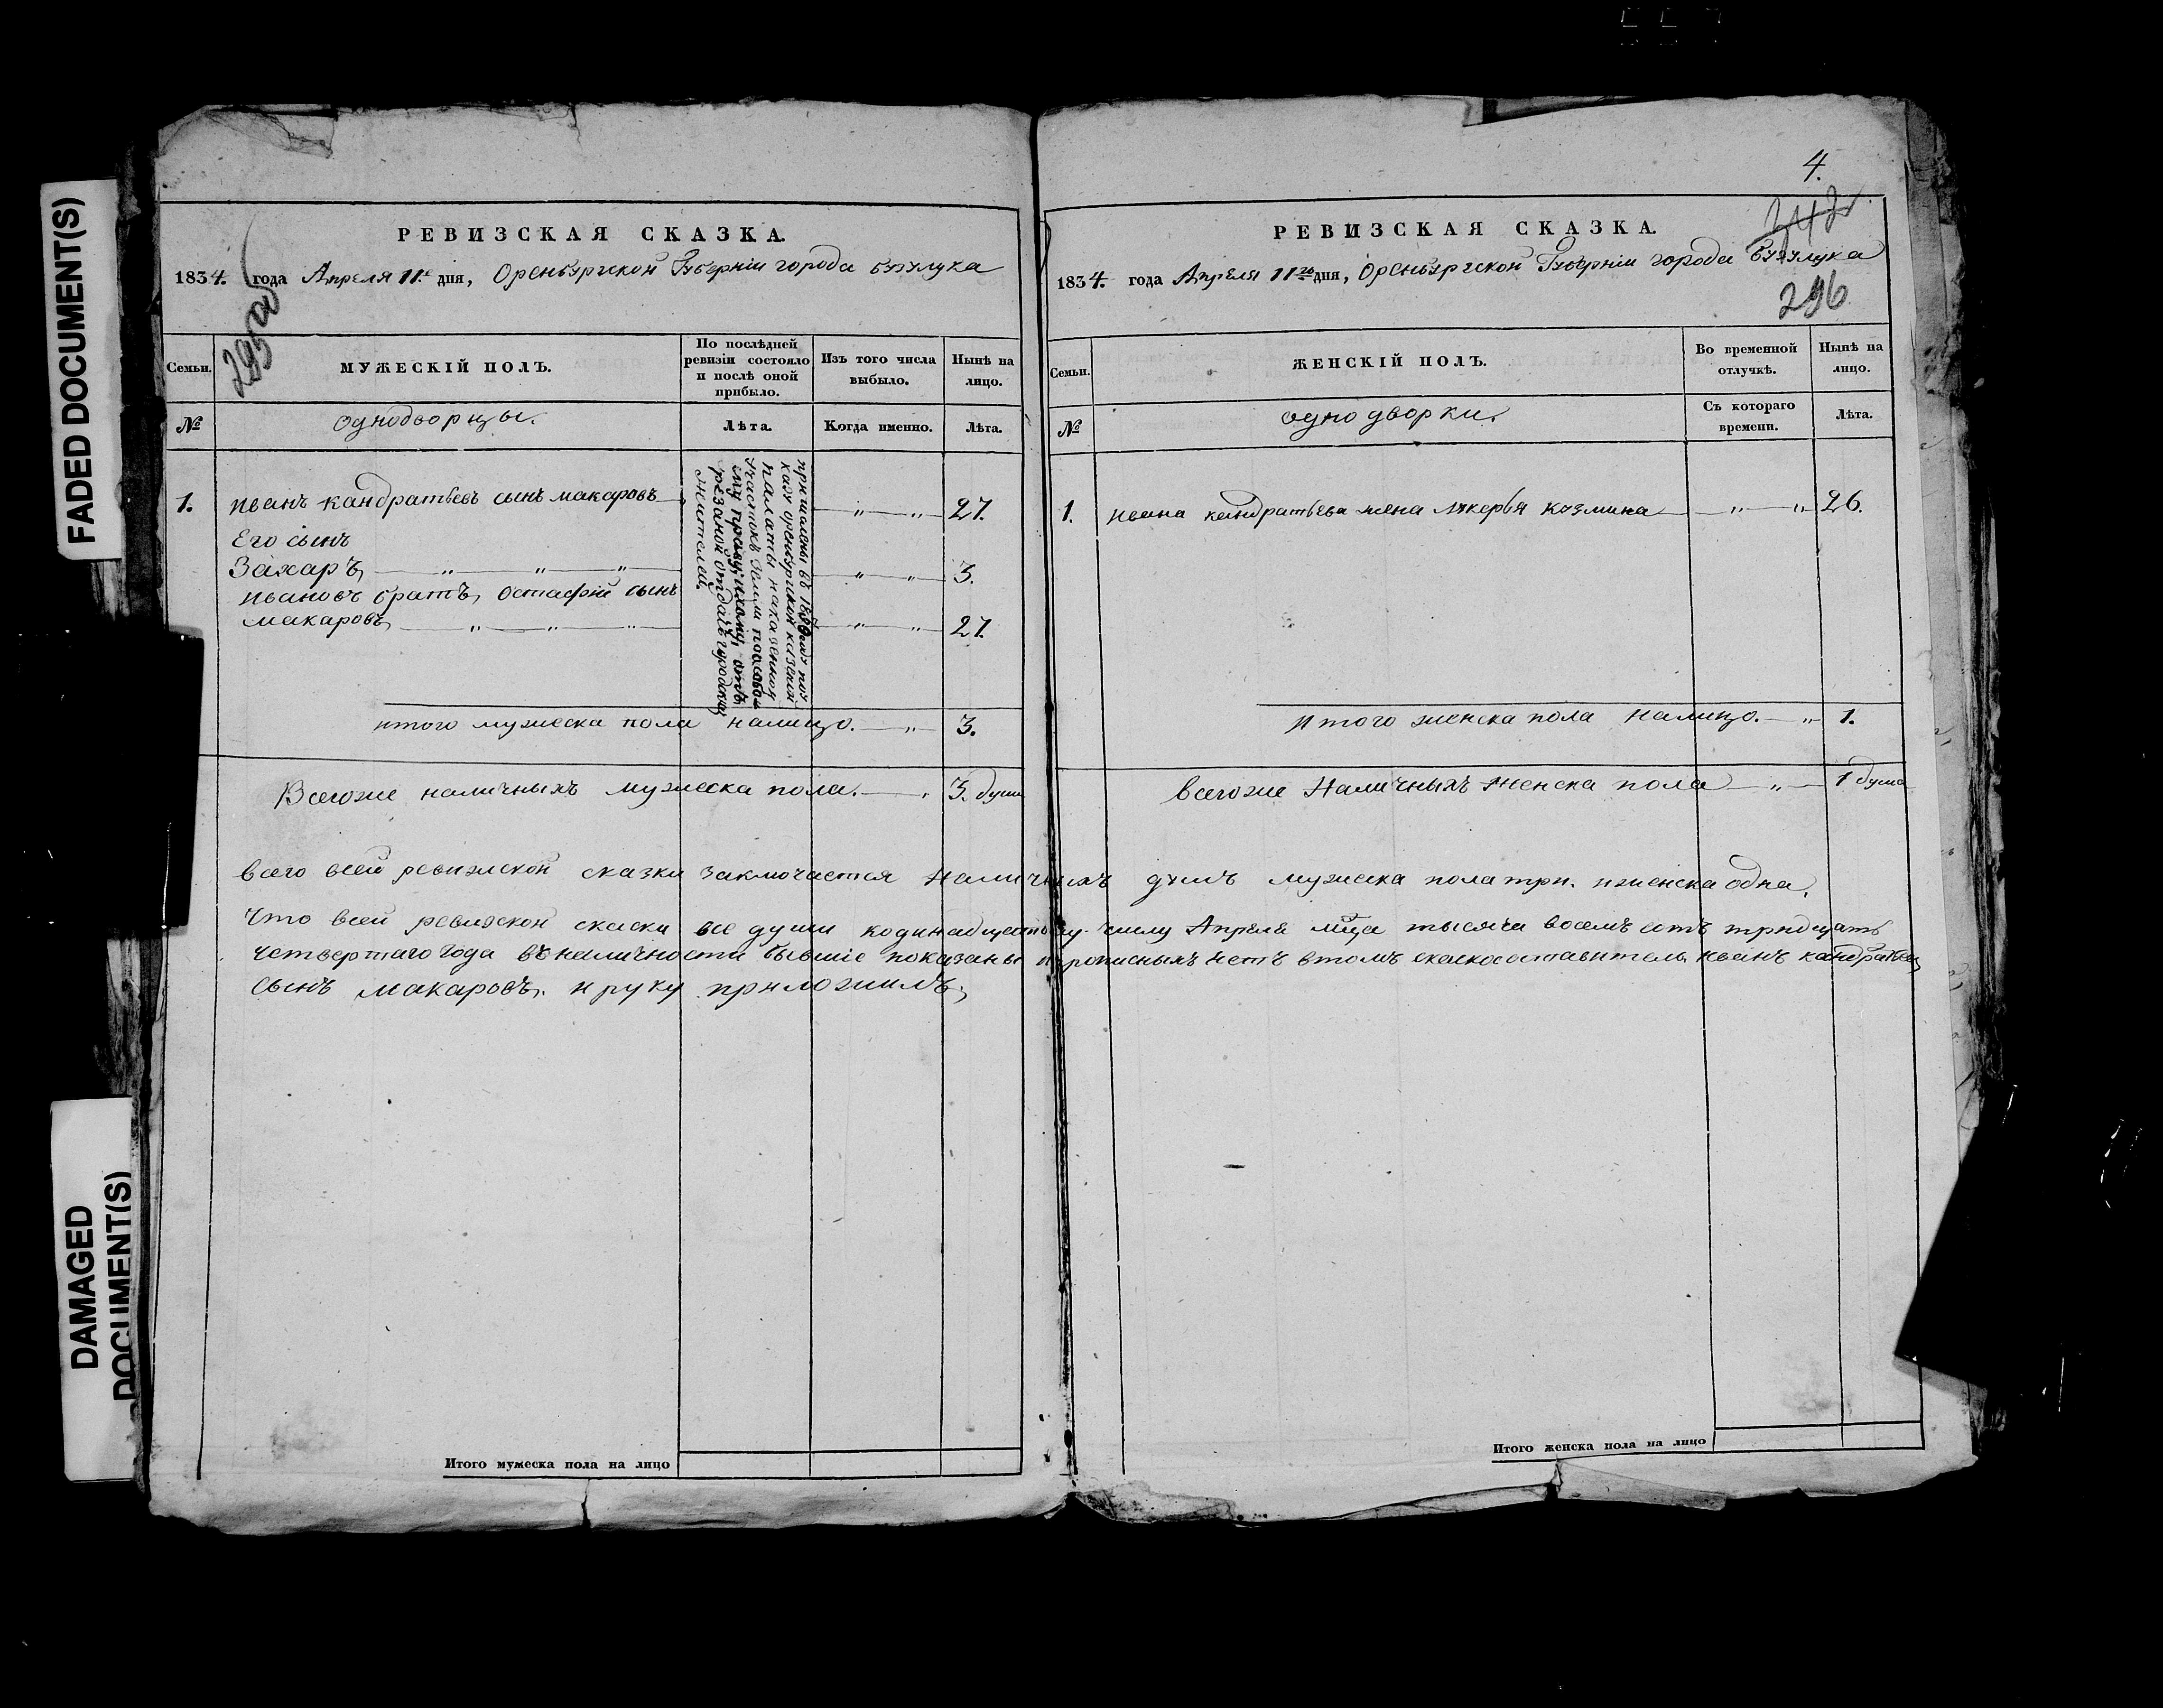 FADED DOCUMENT(S)
DAMAGED
DOCUMENT(S)
РЕВИЗСКАЯ СКАЗКА.
1834. года Апреля 11.е дня, Оренбургской Губѣрніи города бузулука
295 об
Семьи.
МУЖЕСКІЙ ПОЛЪ.
По послѣдней
ревизіи состояло
и послѣ оной
прибыло.
Изъ того числа
выбыло.
Нынѣ на
лицо.
№
однодворцы.
Лѣта.
Когда именно.
Лѣта.
1. иванъ кандратьевъ сынъ макаровъ „ „ 27.
Его сынъ
Захаръ, „ „ „ „ „ 3.
ивановъ братъ, остафей сынъ
макаровъ, „ „ „ „ „ 27.
казу оренбургской казеной
палаты на казенной
участокъ земли
резаной отдачѣ городских
жителей.
итого мужеска пола налицо. „ 3.
Всегоже наличныхъ мужеска пола. 3. души
4.
РЕВИЗСКАЯ СКАЗКА.
1834. года Апреля 11го дня, Оренбургской Губѣрніи города бузулука
296
Семьи.
ЖЕНСКІЙ ПОЛЪ.
Во временной
отлучкѣ.
Нынѣ на
лицо.
№
однодворки.
Съ котораго
времени.
Лѣта.
1. ивана кандратьева жена лукерья козмина „ „ 26.
Итого женска пола налицо. „ 1.
всегоже Наличныхъ женска пола „ 1 душа
всего всей ревизской сказки заключается Наличныхъ душъ мужеска пола три. иженска одна.
Что всей ревизской скаски все души кодинадцатому числу Апреля мца тысяча восемъ сотъ тридцать
четвертаго года въ наличности бывшіе показаны ипрописныхъ нетъ втомъ скаскосоставитель иванъ кандратьевъ
сынъ макаровъ, и руку приложилъ,
Итого мужеска пола на лицо
Итого женска пола на лицо